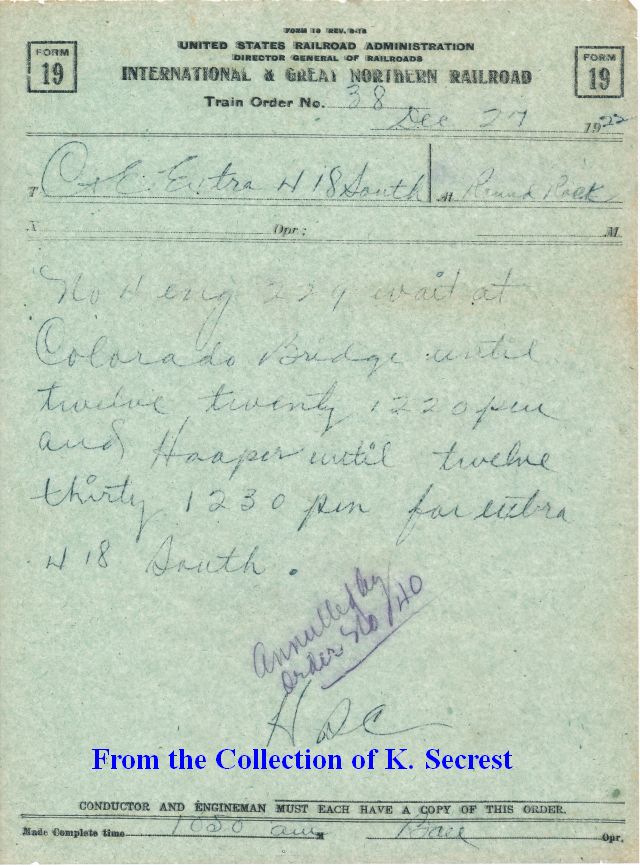 FORM 19 REV. 3-18
UNITED STATES RAILROAD ADMINISTRATION
DIRECTOR GENERAL OF RAILROADS
FORM 19
INTERNATIONAL & GREAT NORTHERN RAILROAD
FORM 19
Train Order No. 38
Dec 27 1922
T C&E Extra 418 South At Round Rock
X Opr; M
No 4 eng 229 wait at
Colorado Bridge until
twelve twenty 1220 pm
and Hooper until twelve
thirty 1230 pm for extra
418 South.
Annulled by
order No 40
H D C
From the Collection of K. Secrest
CONDUCTOR AND ENGINEMAN MUST EACH HAVE A COPY OF THIS ORDER.
Made Complete time 1050 am M Opr.